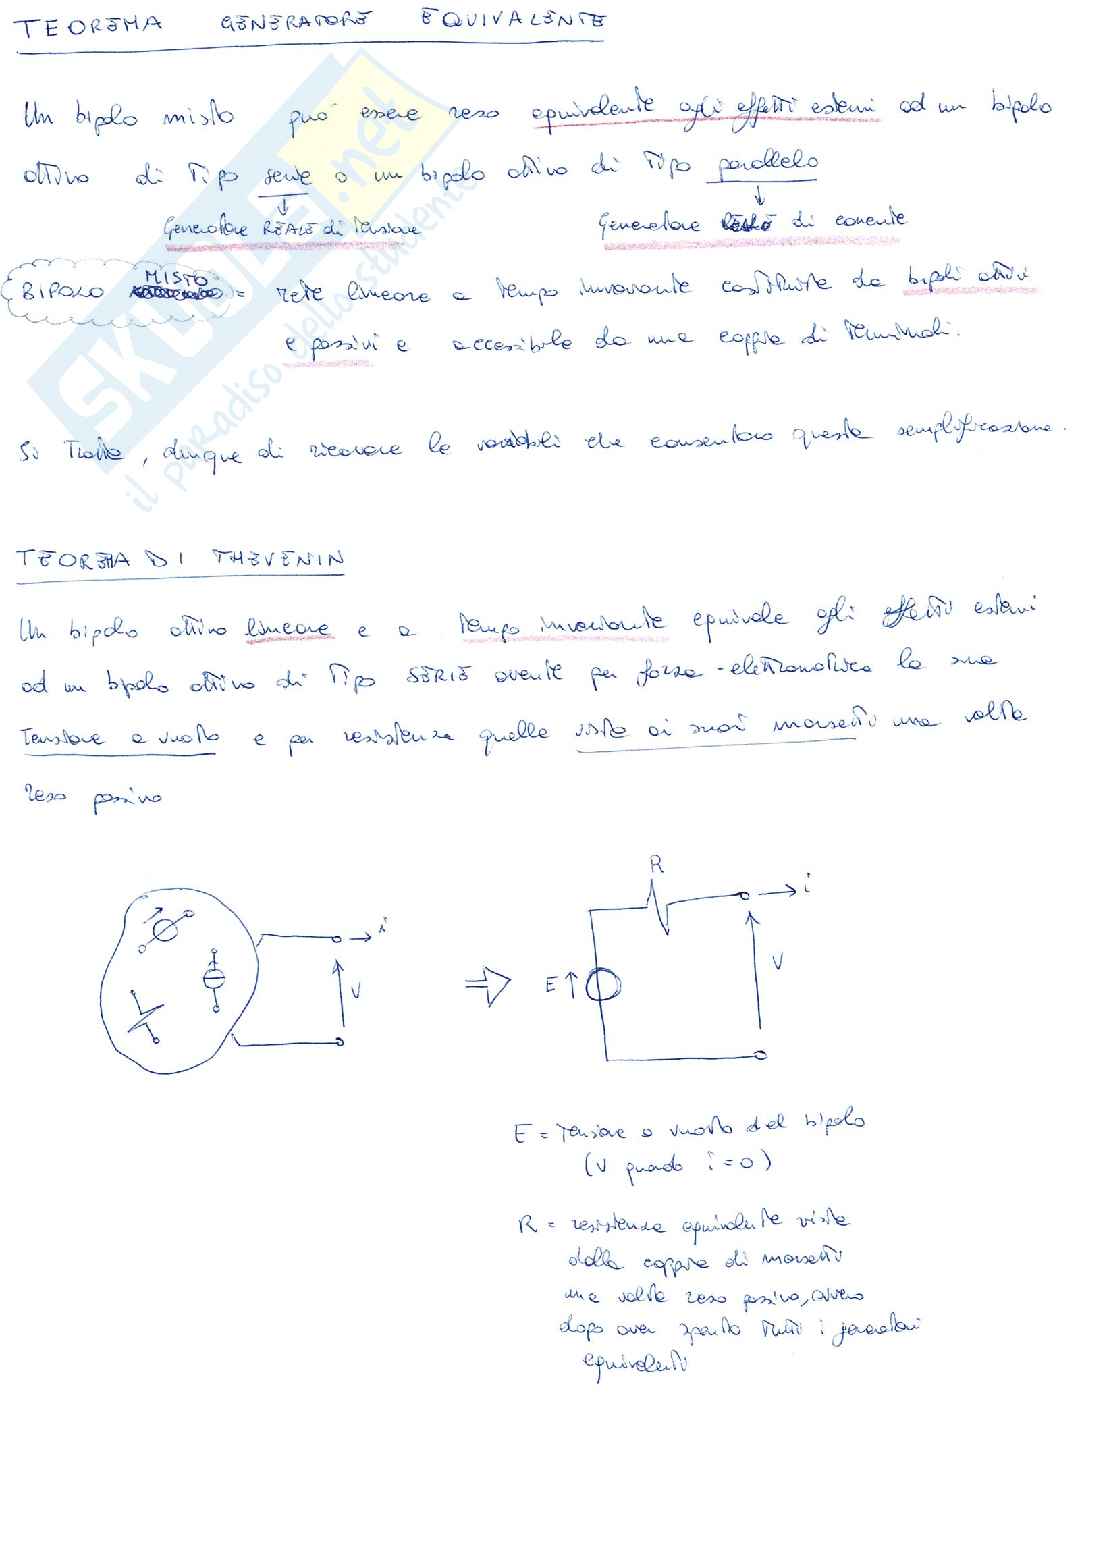 TEOREMA GENERATORE EQUIVALENTE
Un bipolo misto può essere reso equivalente agli effetti esterni ad un bipolo
attivo di tipo serie o un bipolo attivo di tipo parallelo
Generatore REALE di tensione Generatore REALE di corrente
BIPOLO MISTO = rete lineare a tempo invariante costituita da bipoli attivi
e passivi e accessibile da una coppia di terminali.
Si tratta, dunque di ricavare le variabili che consentono questa semplificazione.
TEOREMA DI THEVENIN
Un bipolo attivo lineare e a tempo invariante equivale agli effetti esterni
ad un bipolo attivo di tipo SERIE avente per forza-elettromotrice la sua
tensione a vuoto e per resistenza quella vista ai suoi morsetti una volta
reso passivo
R
i
i
V
E
V
E = tensione a vuoto del bipolo
(V quando i=0)
R = resistenza equivalente vista
dalla coppia di morsetti
una volta reso passivo, ovvero
dopo aver spento tutti i generatori
equivalenti
SKUOLA.net
il paradiso dello studente